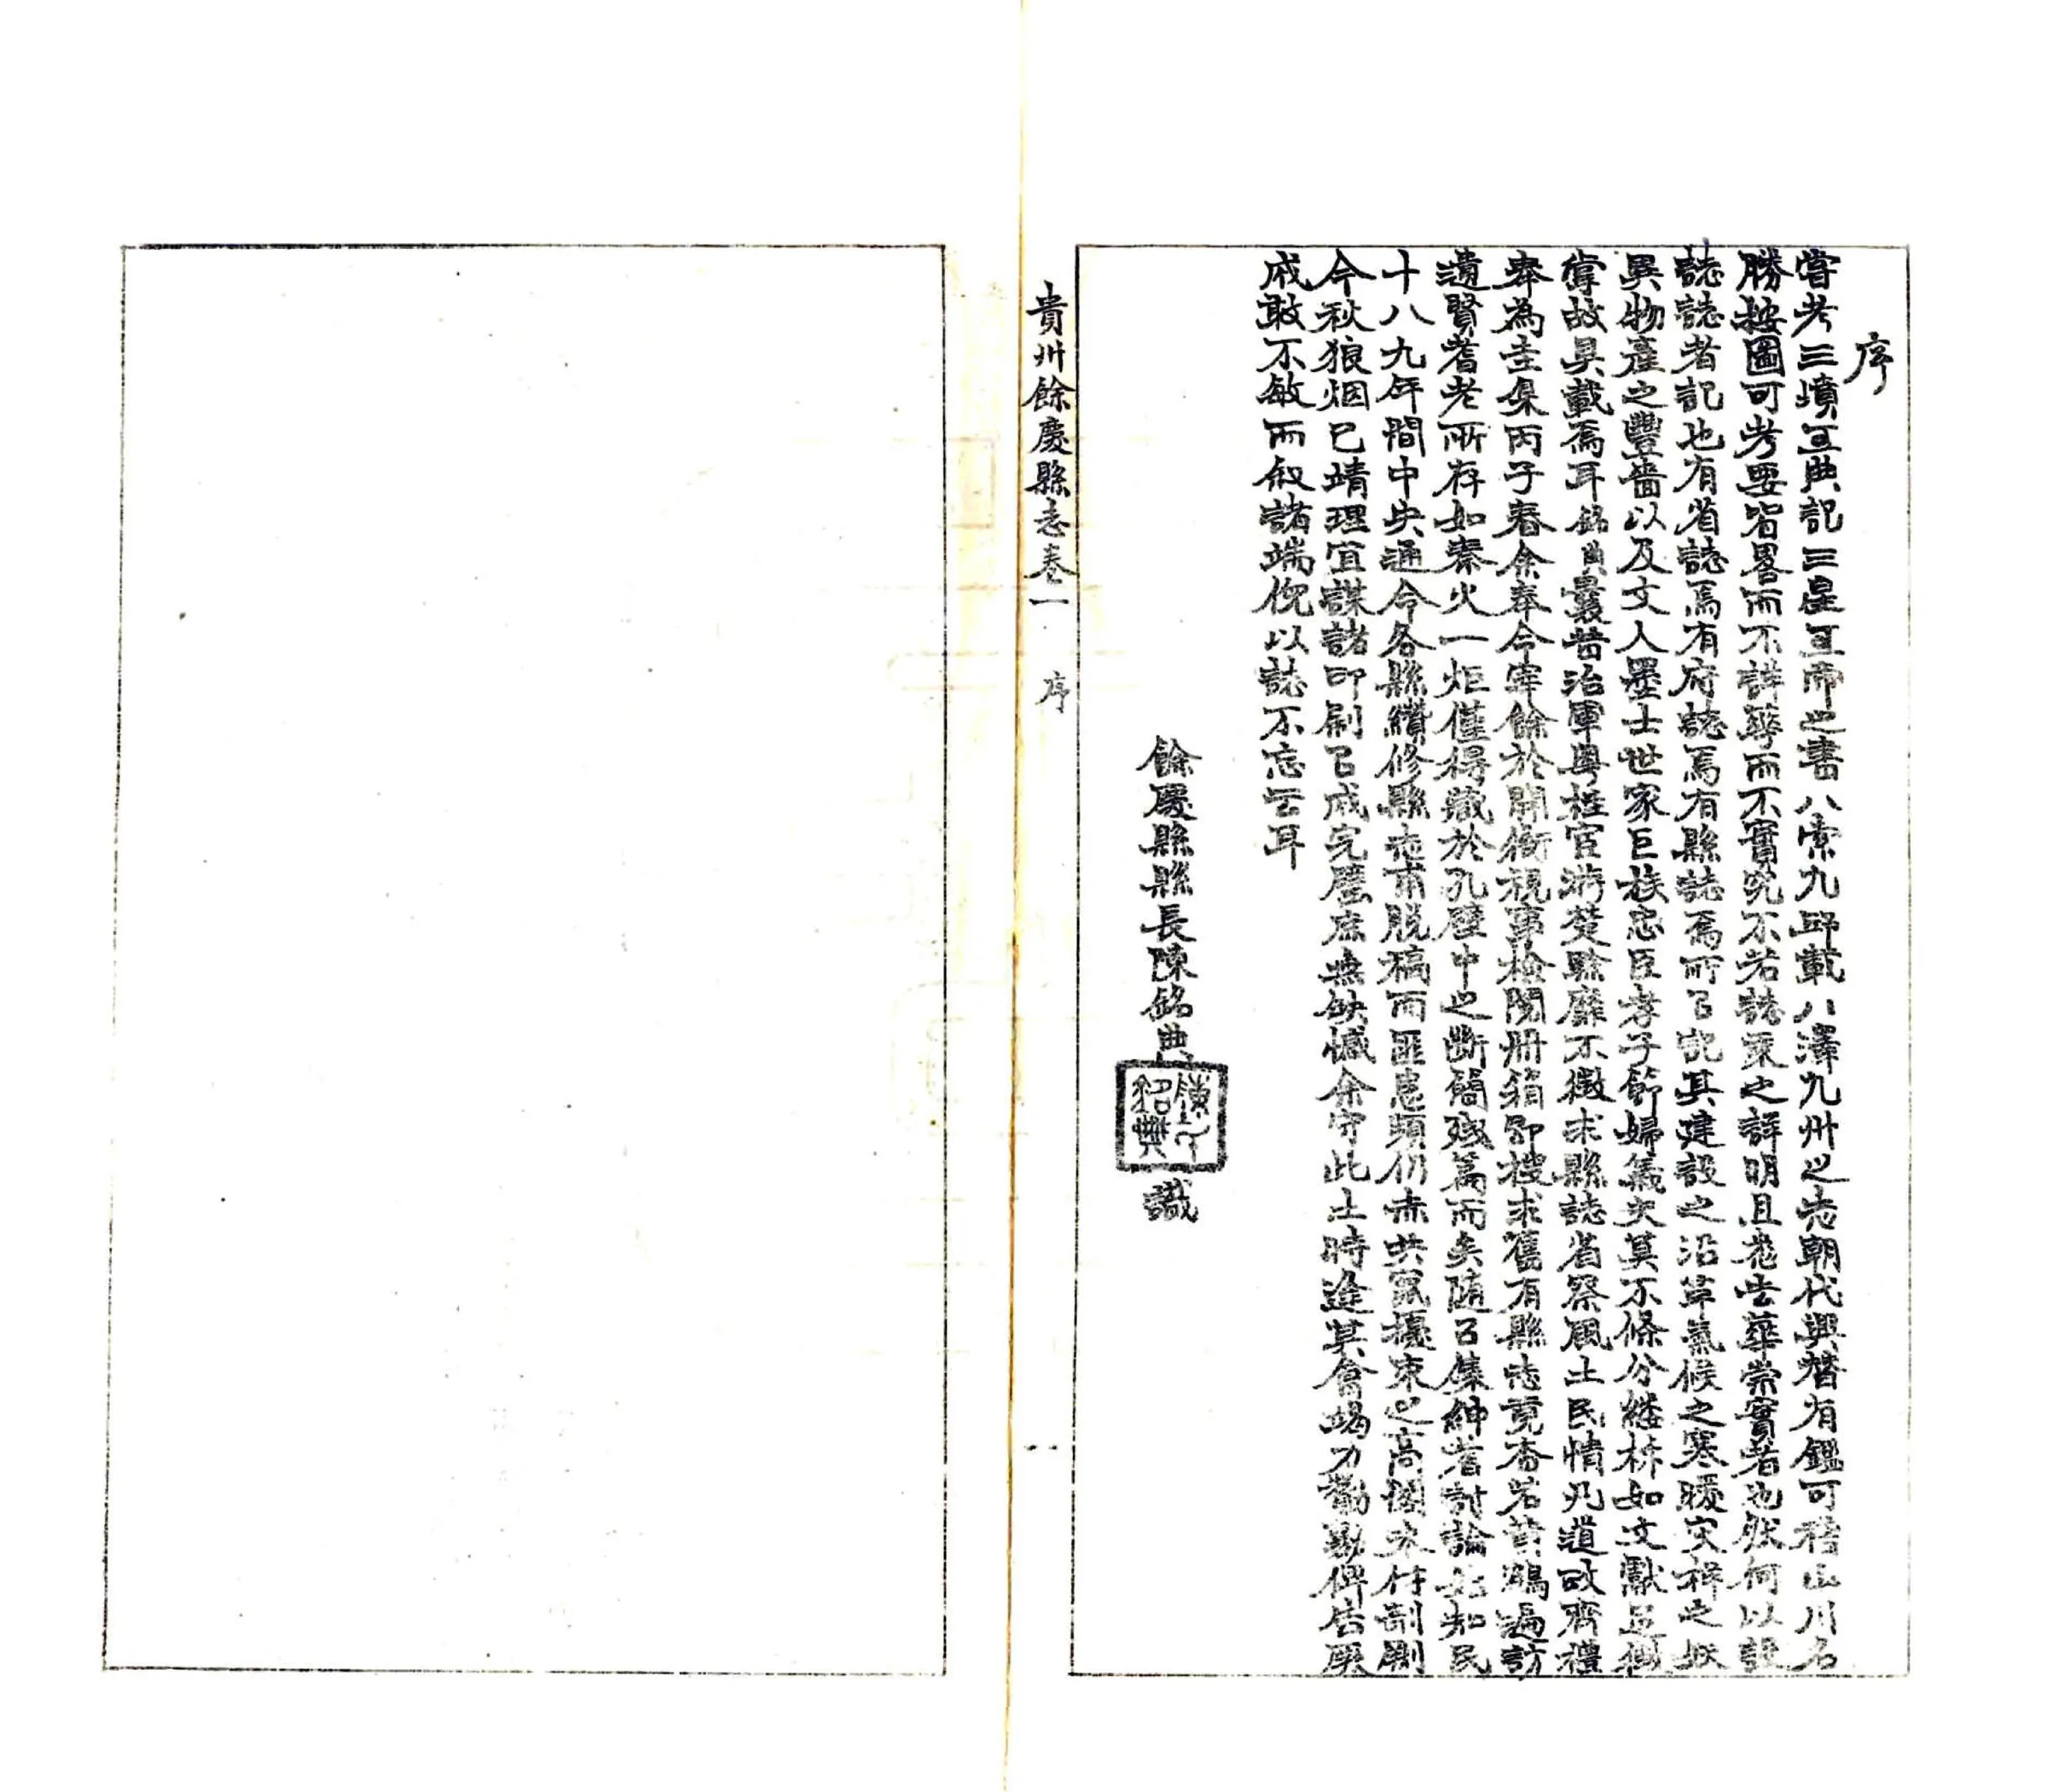 序
嘗考三墳五典記三皇五帝之書八索九邱載八澤九州之志朝代興替有鑑可稽山川名
勝按圖可考要皆畧而不詳華而不實究不若誌乘之詳明且老去華崇實者也然何以謂
誌誌者記也有省誌焉有府誌焉有縣誌焉所㠯記其建設之沿革氣候之寒暖灾祥之妖
異物產之豐嗇以及文人墨士世家巨族忠臣孝子節婦義夫莫不條分縷析如文獻足徵
掌故具載焉耳銘典曩昔治軍粤桂宦游楚黔靡不徵求縣誌省祭風土民情凡道政齊禮
奉為圭臬丙子春余奉令宰餘於開衙視事檢閱册籍即搜求舊有縣志竟杳若黃鶴遍訪
遺賢耆老所存如秦火一炬僅得藏於孔壁中之斷簡殘篇而矣隨召集紳耆討論始知民
十八九年間中央通令各縣纘修縣志甫脱稿而匪患頻仍赤共竄擾束之高閣未付剞劂
今秋狼烟已靖理宜謀諸印刷㠯成完璧庶無缺憾余守此土時逢其會竭力勷勷俾告厥
成敢不敏而叙諸端倪以誌不忘云耳
餘慶縣縣長陳銘典
陳銘典
識
貴州餘慶縣志卷一 序 一